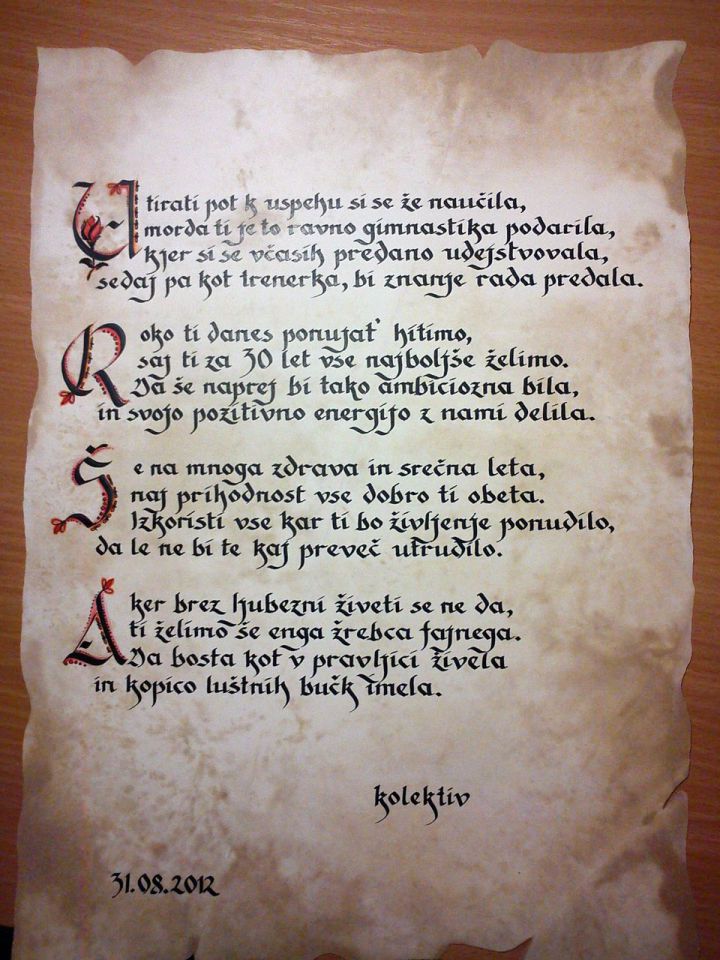 Utirati pot k uspehu si se že naučila,
morda ti je to ravno gimnastika podarila,
kjer si se včasih predano udejstvovala,
sedaj pa kot trenerka, bi znanje rada predala.
Roko ti danes ponujat' hitimo,
saj ti za 30 let vse najboljše želimo.
Da še naprej bi tako ambiciozna bila,
in svojo pozitivno energijo z nami delila.
Še na mnoga zdrava in srečna leta,
naj prihodnost vse dobro ti obeta.
Izkoristi vse kar ti bo življenje ponudilo,
da le ne bi te kaj preveč utrudilo.
A ker brez ljubezni živeti se ne da,
ti želimo še enga žrebca fajnega.
Da bosta kot v pravljici živela
in kopico luštnih bučk imela.
kolektiv
31.08.2012